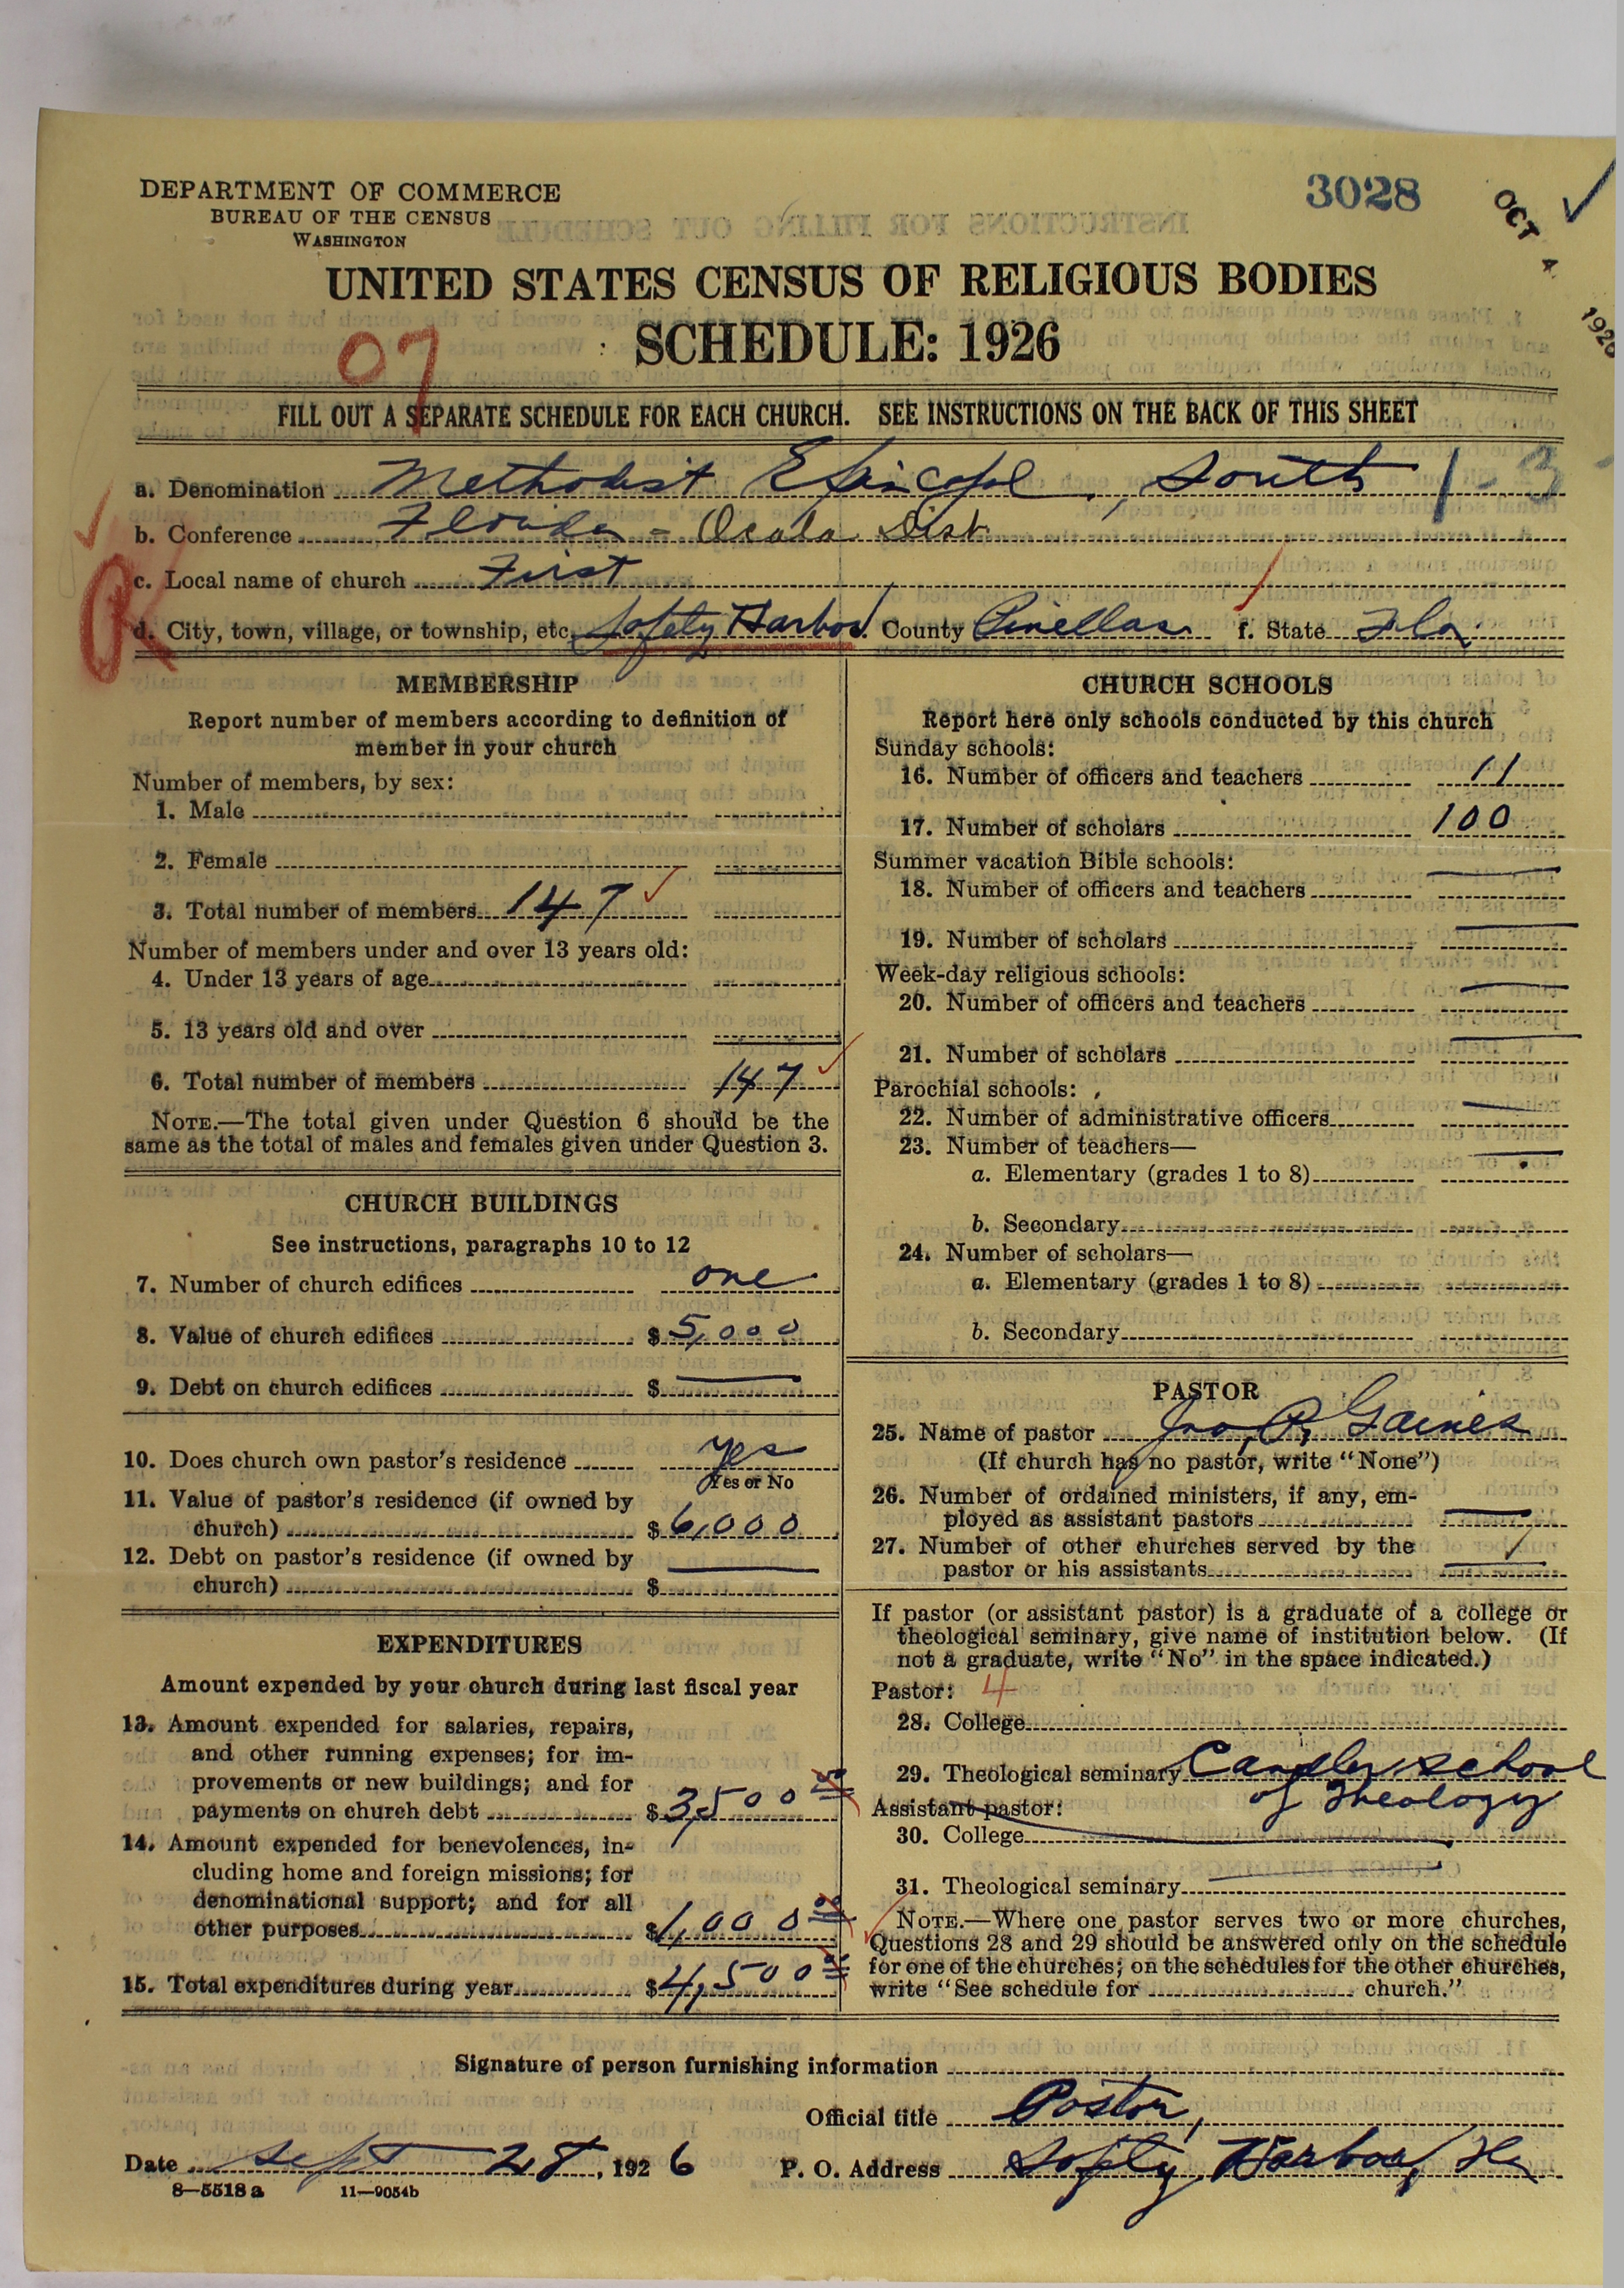 DEPARTMENT OF COMMERCE
BUREAU OF THE CENSUS
WASHINGTON
3028
OCT 4 1926
UNITED STATES CENSUS OF RELIGIOUS BODIES
SCHEDULE: 1926
07
FILL OUT A SEPARATE SCHEDULE FOR EACH CHURCH. SEE INSTRUCTIONS ON THE BACK OF THIS SHEET
a. Denomination Methodist Episcopal, South 1-3
b. Conference Florida - Ocala Dist.
c. Local name of church First
d. City, town, village, or township, etc. Safety Harbor County Pinellas f. State Fla.
MEMBERSHIP
Report number of members according to definition of
member in your church
Number of members, by sex:
1. Male
2. Female
3. Total number of members 147
Number of members under and over 13 years old:
4. Under 13 years of age
5. 13 years old and over
6. Total number of members 147
NOTE.—The total given under Question 6 should be the
same as the total of males and females given under Question 3.
CHURCH BUILDINGS
See instructions, paragraphs 10 to 12
7. Number of church edifices one
8. Value of church edifices $5,000
9. Debt on church edifices $
10. Does church own pastor's residence yes
Yes or No
11. Value of pastor's residence (if owned by
church) $6,000
12. Debt on pastor's residence (if owned by
church) $
EXPENDITURES
Amount expended by your church during last fiscal year
13. Amount expended for salaries, repairs,
and other running expenses; for im-
provements or new buildings; and for
payments on church debt $3,500 00
14. Amount expended for benevolences, in-
cluding home and foreign missions; for
denominational support; and for all
other purposes $1,000 00
15. Total expenditures during year $4,500 00
CHURCH SCHOOLS
Report here only schools conducted by this church
Sunday schools:
16. Number of officers and teachers 11
17. Number of scholars 100
Summer vacation Bible schools:
18. Number of officers and teachers
19. Number of scholars
Week-day religious schools:
20. Number of officers and teachers
21. Number of scholars
Parochial schools:
22. Number of administrative officers
23. Number of teachers—
a. Elementary (grades 1 to 8)
b. Secondary
24. Number of scholars—
a. Elementary (grades 1 to 8)
b. Secondary
PASTOR
25. Name of pastor Jno. P. Gaines
(If church has no pastor, write "None")
26. Number of ordained ministers, if any, em-
ployed as assistant pastors
27. Number of other churches served by the
pastor or his assistants
If pastor (or assistant pastor) is a graduate of a college or
theological seminary, give name of institution below. (If
not a graduate, write "No" in the space indicated.)
Pastor: 4
28. College
29. Theological seminary Candler School
of Theology
Assistant pastor:
30. College
31. Theological seminary
NOTE.—Where one pastor serves two or more churches,
Questions 28 and 29 should be answered only on the schedule
for one of the churches; on the schedules for the other churches,
write "See schedule for church."
Signature of person furnishing information
Official title Pastor,
Date Sept 28, 1926 P. O. Address Safety Harbor, Fla
8—5518 a 11—9054b